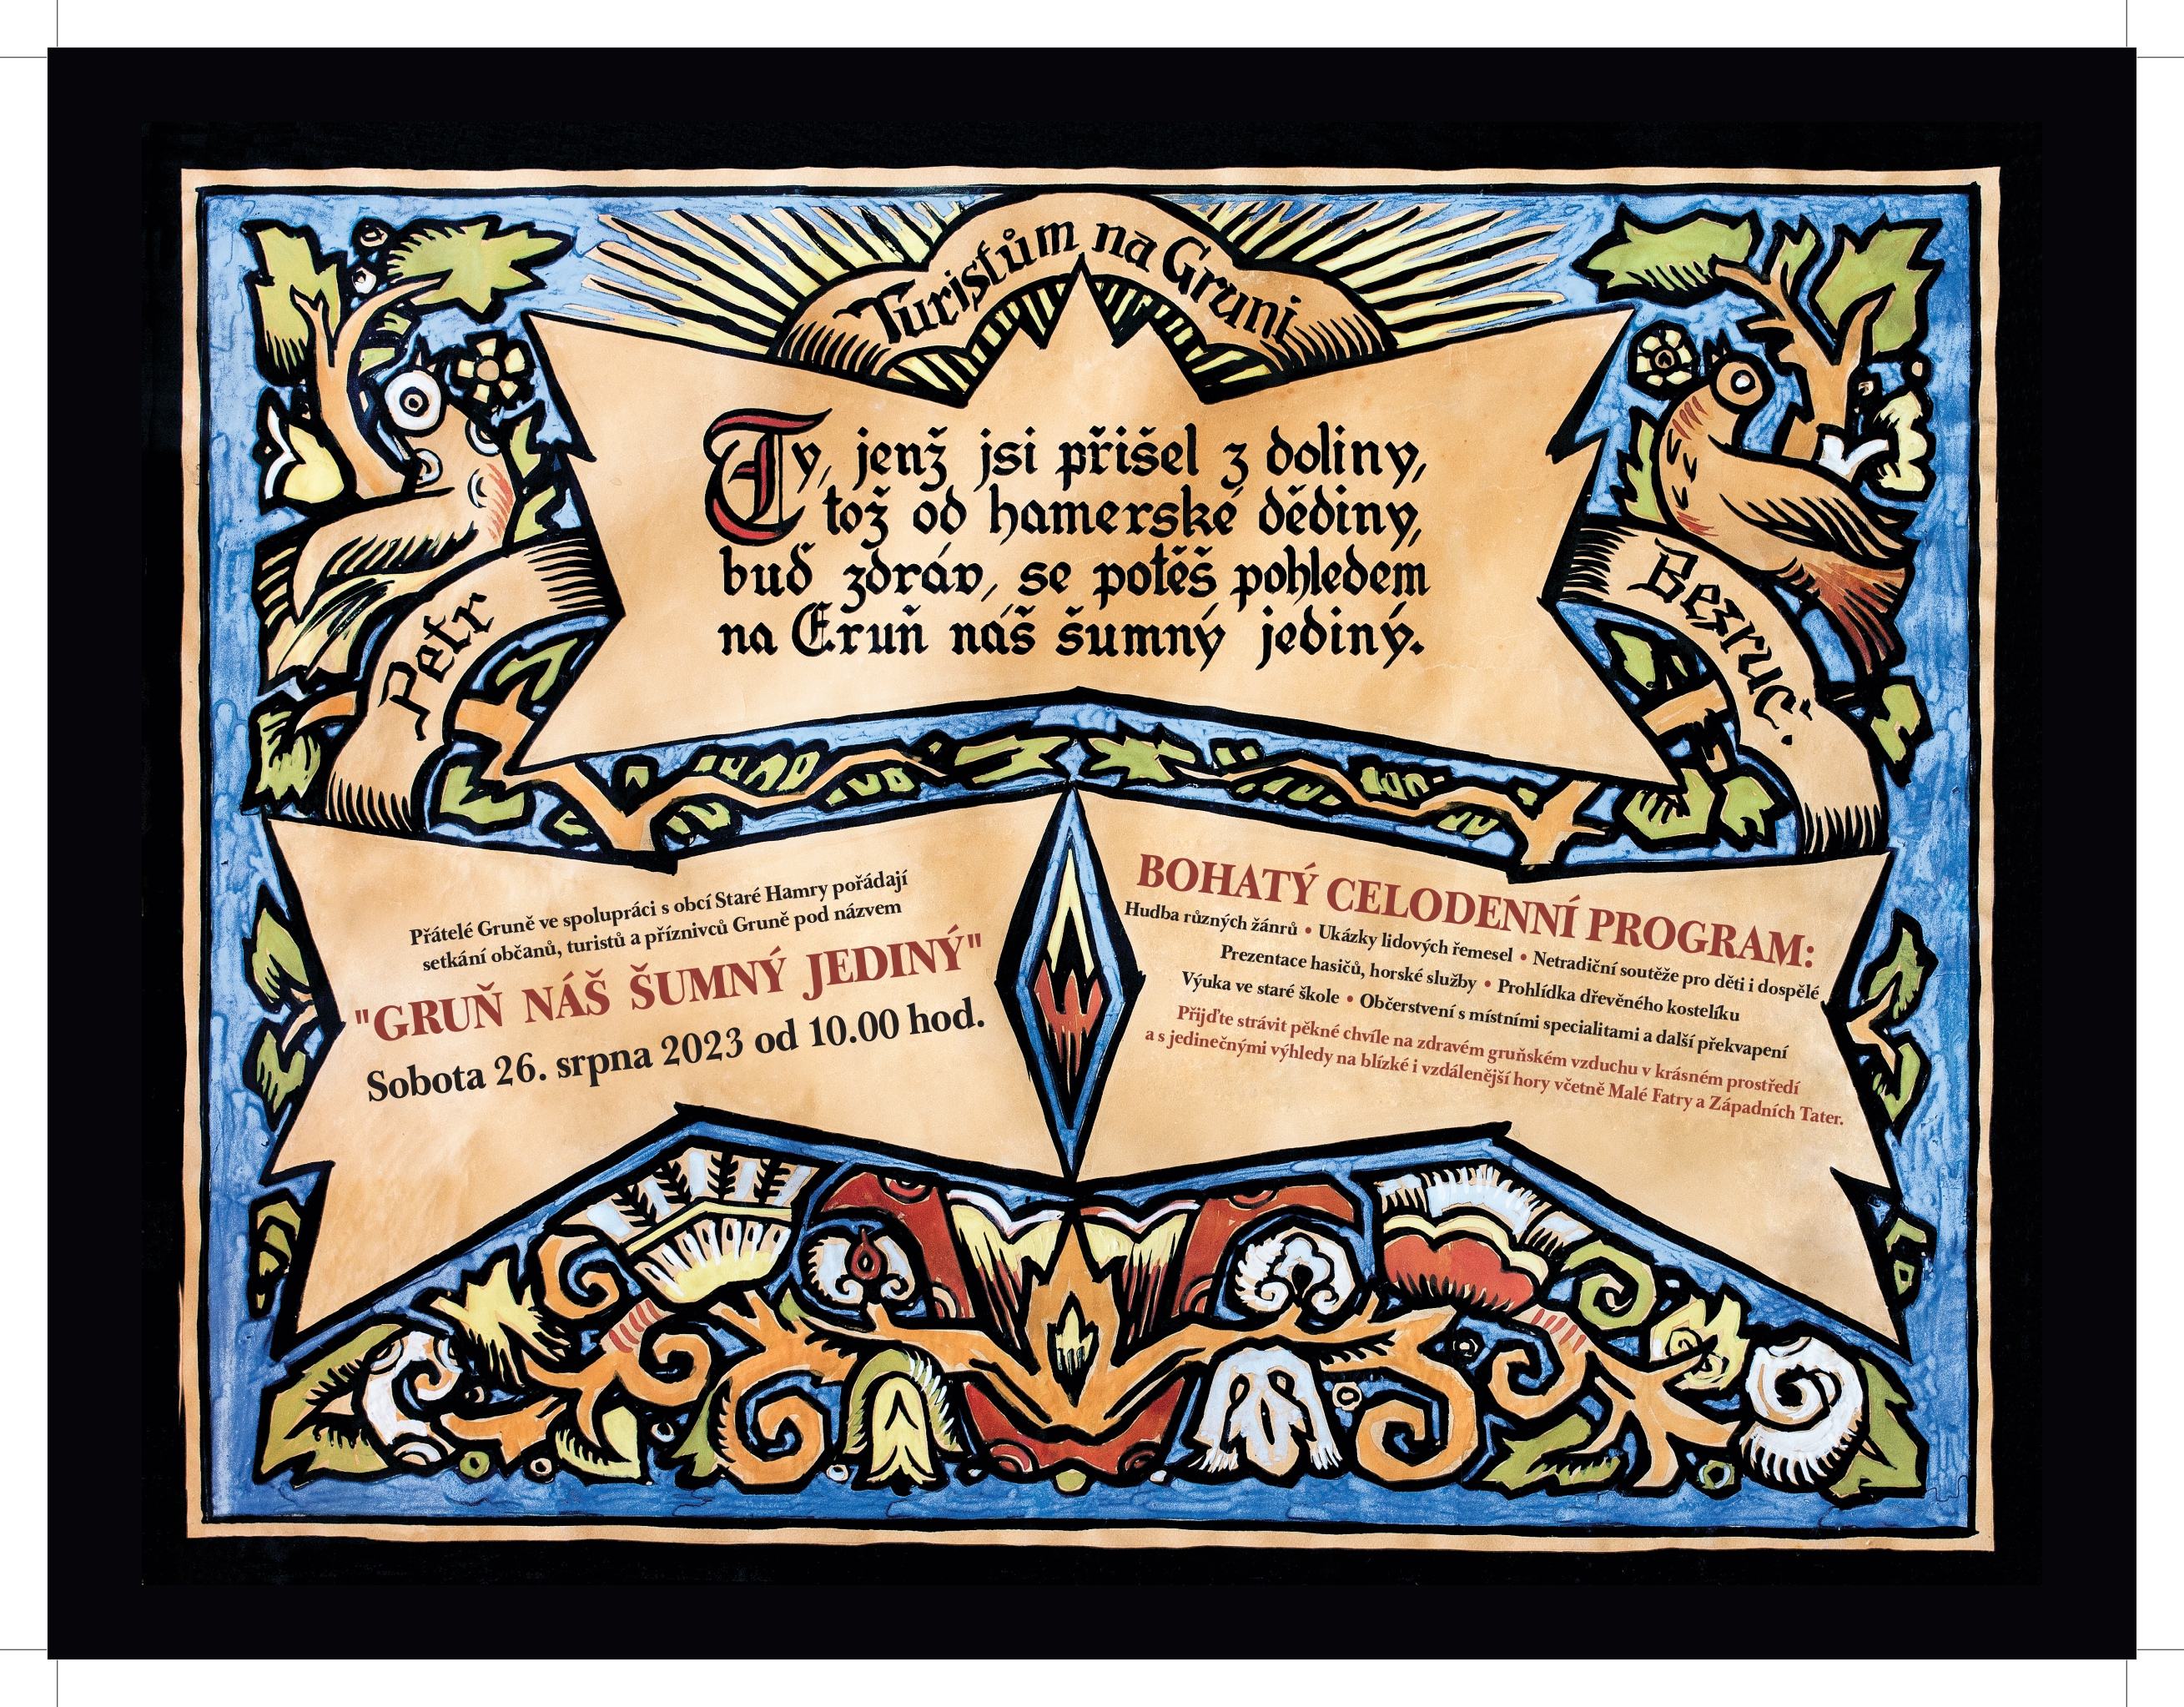 Turistům na Gruni
Ty, jenž jsi přišel z doliny,
tož od hamerské dědiny,
buď zdráv, se potěš pohledem
na Gruň náš šumný jediný.
Petr
Bezruč.
Přátelé Gruně ve spolupráci s obcí Staré Hamry pořádají
setkání občanů, turistů a příznivců Gruně pod názvem
"GRUŇ NÁŠ ŠUMNÝ JEDINÝ"
Sobota 26. srpna 2023 od 10.00 hod.
BOHATÝ CELODENNÍ PROGRAM:
Hudba různých žánrů • Ukázky lidových řemesel • Netradiční soutěže pro děti i dospělé
Prezentace hasičů, horské služby • Prohlídka dřevěného kostelíku
Výuka ve staré škole • Občerstvení s místními specialitami a další překvapení
Přijďte strávit pěkné chvíle na zdravém gruňském vzduchu v krásném prostředí
a s jedinečnými výhledy na blízké i vzdálenější hory včetně Malé Fatry a Západních Tater.